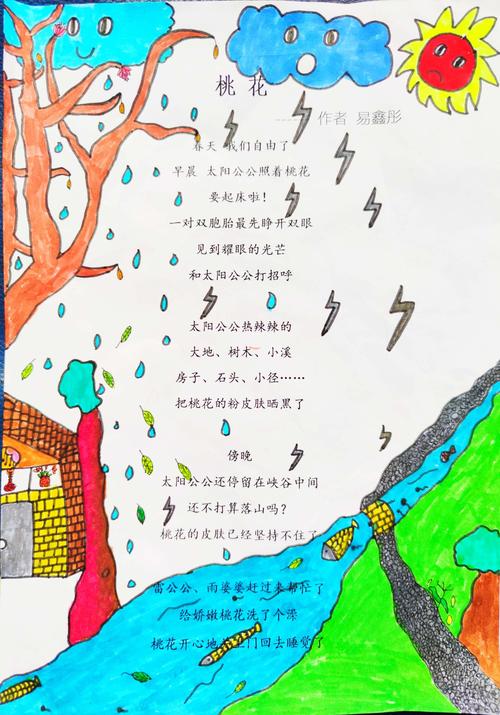 桃花
------ 作者 易鑫彤
春天 我们自由了
早晨 太阳公公照着桃花
要起床啦！
一对双胞胎最先睁开双眼
见到耀眼的光芒
和太阳公公打招呼
太阳公公热辣辣的
大地、树木、小溪
房子、石头、小径……
把桃花的粉皮肤晒黑了
傍晚
太阳公公还停留在峡谷中间
还不打算落山吗？
桃花的皮肤已经坚持不住了
雷公公、雨婆婆赶过来帮忙了
给娇嫩桃花洗了个澡
桃花开心地关上门回去睡觉了